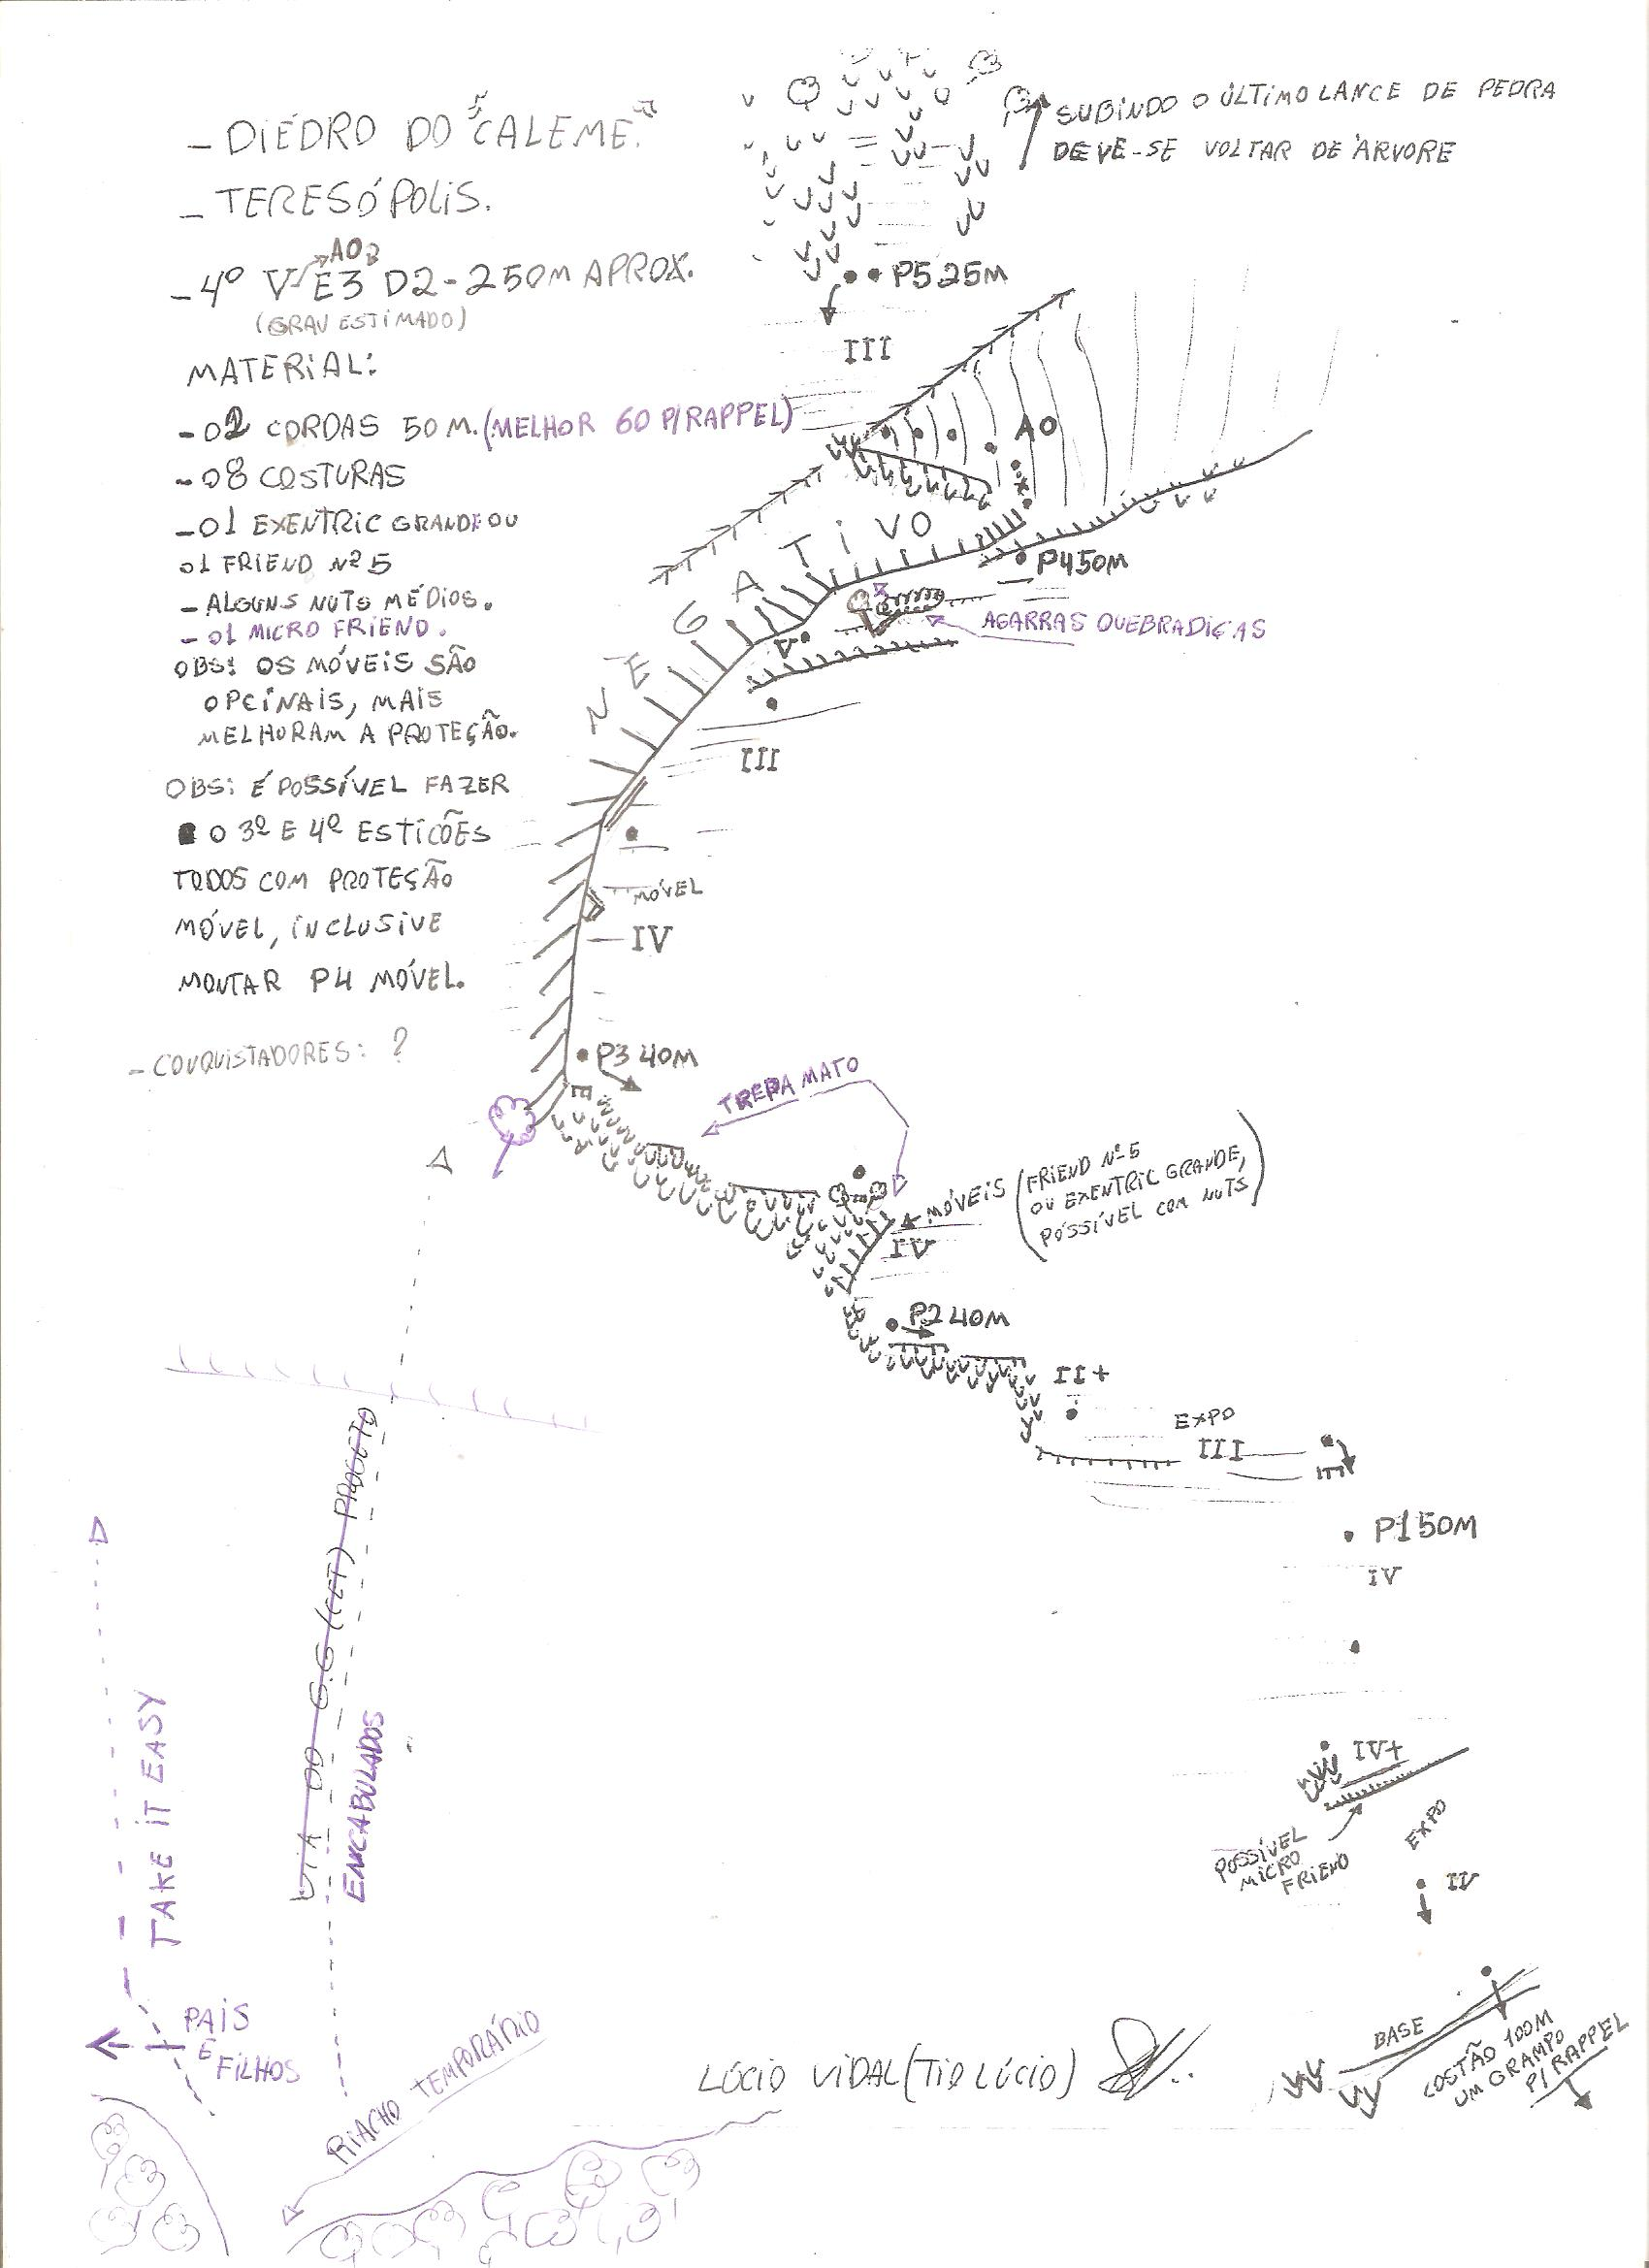 - DIEDRO DO "CALEME."
- TERESÓPOLIS.
A0
- 4º V E3 D2 - 250M APROX.
(GRAU ESTIMADO)
MATERIAL:
- 02 CORDAS 50 M. (MELHOR 60 P/RAPPEL)
- 08 COSTURAS
- 01 EXENTRIC GRANDE OU
01 FRIEND Nº 5
- ALGUNS NUTS MÉDIOS.
- 01 MICRO FRIEND.
OBS: OS MÓVEIS SÃO
OPCINAIS, MAIS
MELHORAM A PROTEÇÃO.
OBS: É POSSÍVEL FAZER
O 3º E 4º ESTICÕES
TODOS COM PROTEÇÃO
MÓVEL, INCLUSIVE
MONTAR P4 MÓVEL.
- CONQUISTADORES: ?
SUBINDO O ÚLTIMO LANCE DE PEDRA
DEVE-SE VOLTAR DE ÁRVORE
P5 25M
III
A0
NEGATIVO
P4 50M
AGARRAS QUEBRADIÇAS
V
III
MÓVEL
IV
P3 40M
TREPA MATO
MÓVEIS (FRIEND Nº 5
OU EXENTRIC GRANDE,
POSSÍVEL COM NUTS)
IV
P2 40M
II+
EXPO
III
P1 50M
IV
IV+
POSSÍVEL
MICRO
FRIEND
EXPO
IV
BASE
COSTÃO 100M
UM GRAMPO
P/ RAPPEL
VIA DO G.G (CET) PROJETO
ENCABULADOS
TAKE IT EASY
PAIS
E
FILHOS
RIACHO TEMPORÁRIO
LÚCIO VIDAL (TIO LÚCIO)